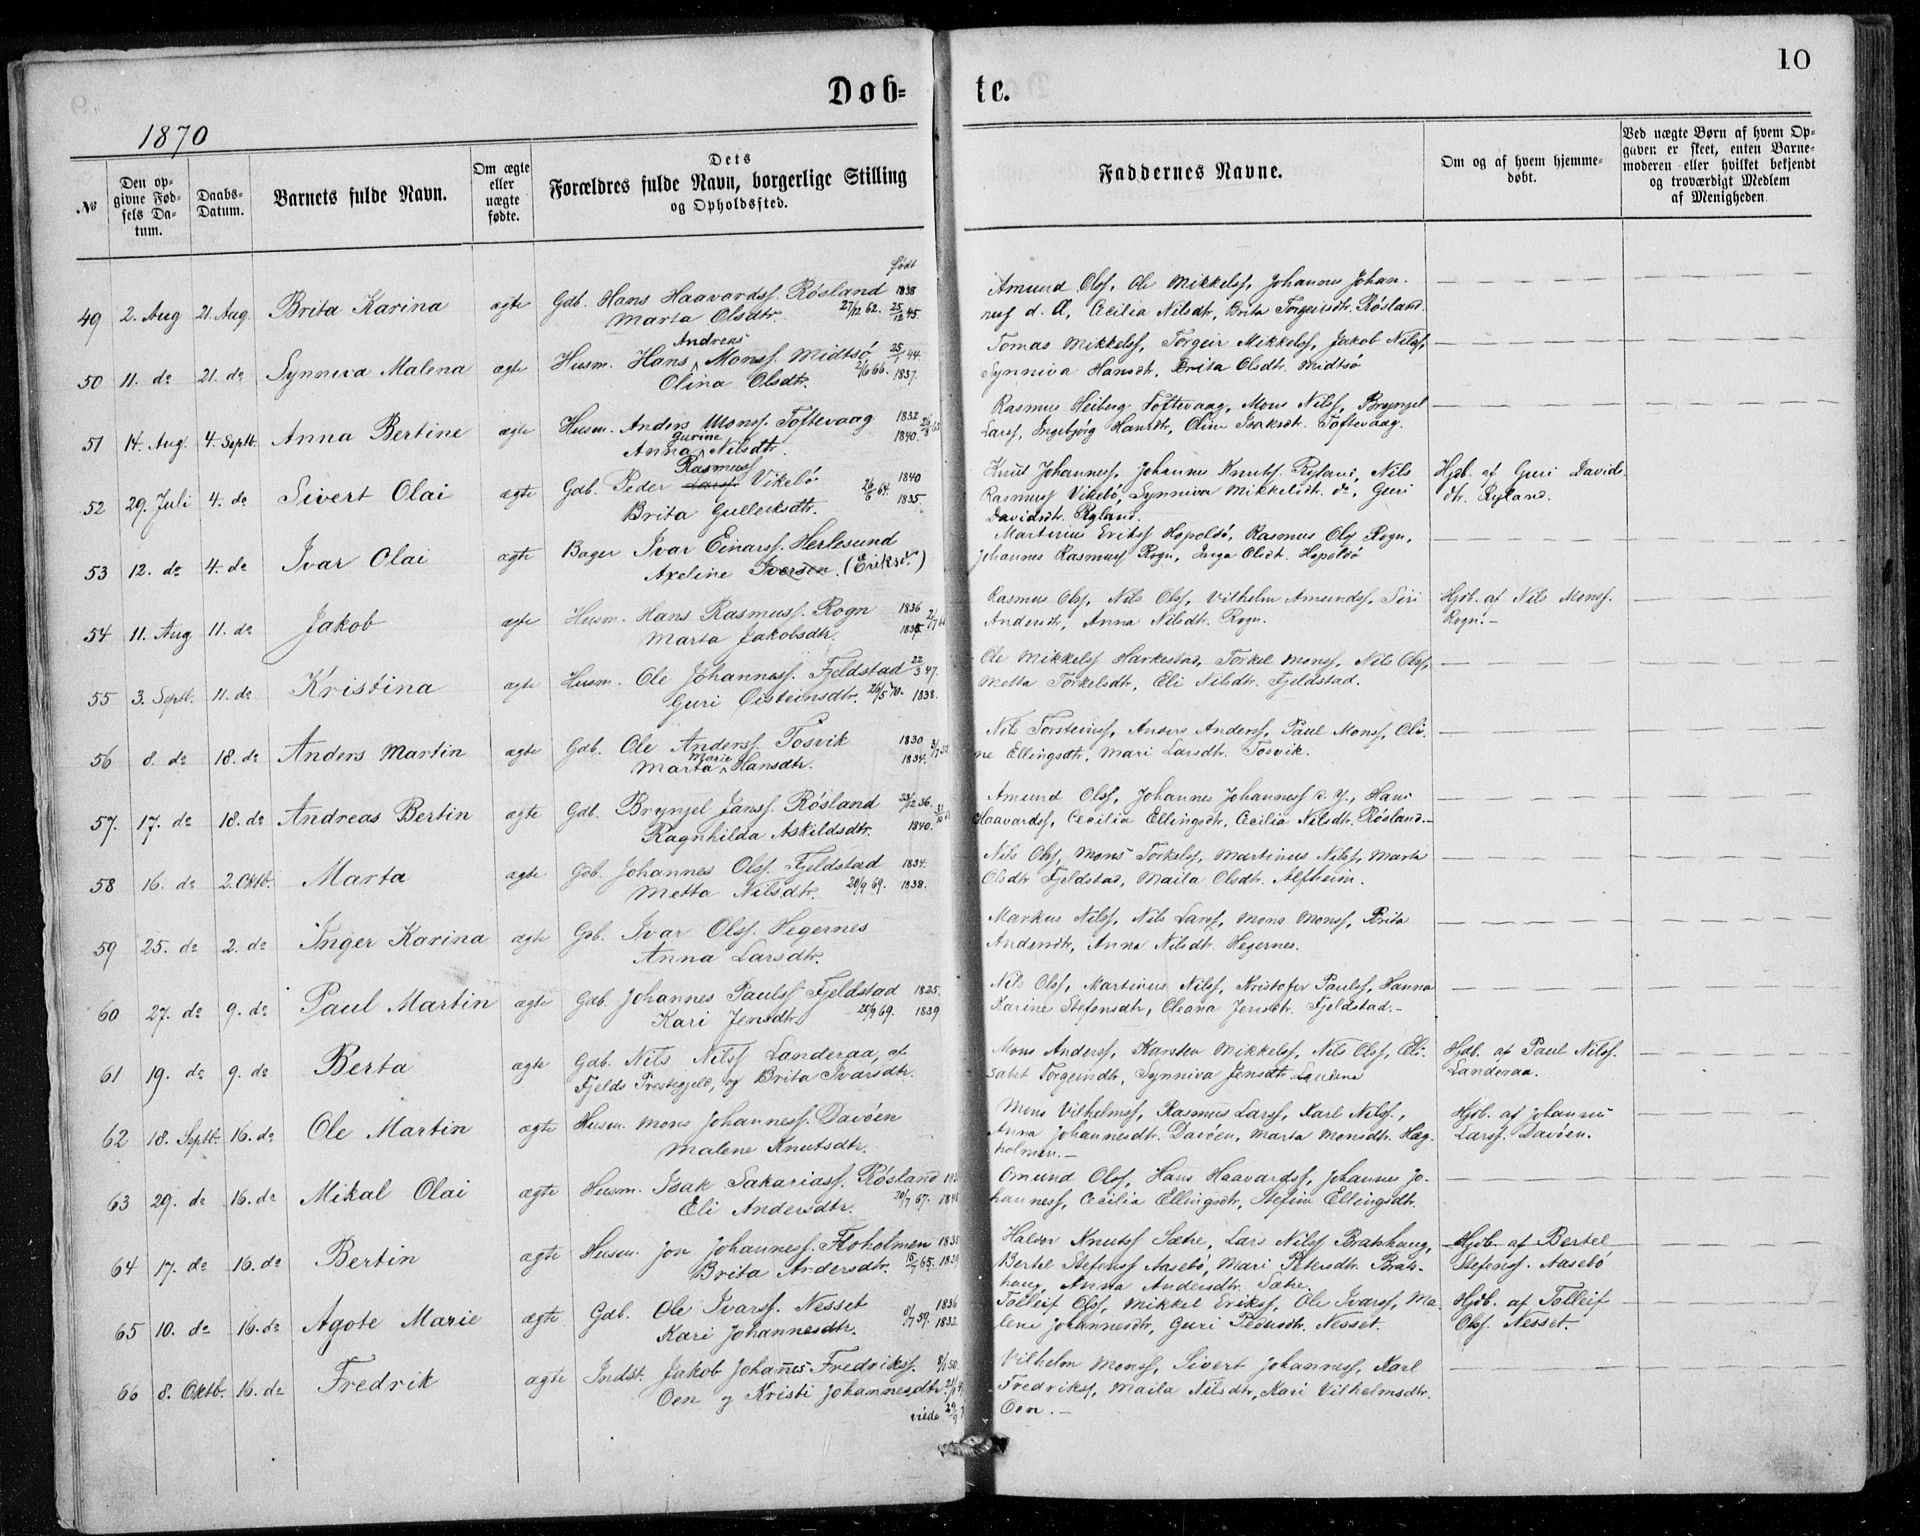 10
Døb-te.
1870
No
Den opgivne Fødsels Datum.
Daabs-Datum.
Barnets fulde Navn.
Om ægte eller uægte fødte.
Dets Forældres fulde Navn, borgerlige Stilling og Opholdssted.
Faddernes Navne.
Om og af hvem hjemmedøbt.
Ved uægte Børn af hvem Opgiven er skeet, enten Barnemoderen eller hvilket bekjendt og troværdigt Medlem af Menigheden
født
49 2. Aug 21. Aug Brita Karina ægte Gdb. Hans Haavardss. Røsland 1838
Marta Olsdtr. 27/12 62. 25/12 45.
Amund Olss, Ole Mikkelss, Johannes Johan.
ness d. Æ, Cecilia Nilsdtr, Brita Torgeirsdtr. Røsland.
50 11. do 21. do Synneva Malena ægte Husm. Hans Andreas Monss. Midtsø 25/1 44.
Olina Olsdtr. 2/6 66. 1837.
Tomas Mikkelss, Torgeir Mikkelss, Jakob Nilss,
Synniva Hansdtr, Brita Olsdtr. Midtsø
51 14. Aug. 4. Septb. Anna Bertine ægte Husm. Anders Monss. Toftevaag 1832
Anna Gurine Nilsdtr. 1840.
Rasmus Heiberg Toftevaag, Mons Nilss, Brynjel
Larss, Ingebjørg Hansdtr, Oline Isaksdtr. Toftevaag.
52 29. Juli 4. do Sivert Olai ægte Gdb. Peder Larss. Rasmuss Vikebø 1840
Brita Gulleiksdtr. 26/6 64. 1835.
Knut Johanness, Johannes Knutss Ryland, Nils
Rasmuss Vikebø, Synniva Mikkelsdtr. do, Guri
Davidsdtr. Ryland.
Hjdb. af Guri Davids
dtr. Ryland.
53 12. do 4. do Ivar Olai ægte Bager Ivar Einarss. Herlesund
Axeline Iversen. (Eriksd.)
Martinius Erikss Hopolsø, Rasmus Olss Rogn,
Johannes Rasmuss Rogn, Inga Olsdtr. Hopolsø
54 11. Aug 11. do Jakob ægte Husm. Hans Rasmuss. Rogn 1836
Marta Jakobsdtr. 1835
Rasmus Olss, Nils Olss, Vilhelm Amundss, Siri
Andersdtr, Anna Nilsdtr. Rogn.
Hjdb. af Nils Monss.
Rogn.-
55 3. Septb. 11. do Kristina ægte Husm. Ole Johanness. Fjeldstad 22/3 47.
Guri Oisteinsdtr. 26/5 70. 1838.
Ole Mikkelss Harkestad, Torkel Monss, Nils Olss,
Metta Torkelsdtr, Eli Nilsdtr. Fjeldstad.
56 8. do 18. do Anders Martin ægte Gdb. Ole Anderss. Tosvik 1830
Marta Marie Hansdtr. 1834.
Nils Torsteinss, Anders Anderss, Paul Monss, Oli
ne Ellingsdtr, Mari Larsdtr. Tosvik.
57. 17. do 18. do Andreas Bertin ægte Gdb. Brynjel Janss. Røsland 23/12 36.
Ragnhilda Askildsdtr. 1840.
Amund Olss, Johannes Johanness d. Y., Hans
Haavardss, Cecilia Ellingsdtr, Cecilia Nilsdtr. Røsland.-
58 16. do 2. Oktb. Marta ægte Gdb. Johannes Olss. Fjeldstad 1834.
Metta Nilsdtr. 20/9 69. 1838.
Nils Olss, Mons Torkelss, Martinus Nilss, Marta
Olsdtr Fjeldstad, Maila Olsdtr. Alfheim.
59 25. do 2. do Inger Karina ægte Gdb. Ivar Olss. Hegernes
Anna Larsdtr.
Markus Nilss, Nils Larss, Mons Monss, Brita
Andersdtr, Anna Nilsdtr. Hegernes.
60 27. do 9. do Paul Martin ægte Gdb. Johannes Paulss Fjeldstad 1825.
Kari Jensdtr. 20/9 69. 1839
Nils Olss, Martinus Nilss, Kristofer Paulss, Hanna
Karine Stefensdtr, Oleana Jensdtr. Fjeldstad.-
61 19. do 9. do Berta ægte Gdb. Nils Nilss Landeraa, af
Fjelds Prestegjeld, og Brita Ivarsdtr.
Mons Anderss, Karsten Mikkelss, Nils Olss, Eli-
sabet Torgeirsdtr, Synniva Jensdtr
Hjdb. af Paul Nilss.
Landeraa.
62 18. Septb. 16. do Ole Martin ægte Husm. Mons Johanness. Davøen
Malene Knutsdtr.
Mons Vilhelmss, Rasmus Larss, Karl Nilss,
Anna Johannesdtr. Davøen, Marta Monsdtr. Hæg-
holmen.-
Hjdb. af Johannes
Larss. Davøen.
63 29. do 16. do Mikal Olai ægte Husm. Isak Sakariass. Røsland
Eli Andersdtr. 20/7 67.
Omund Olss, Hans Haavardss, Johannes Jo-
hanness, Cecilia Ellingsdtr, Stefine Ellingsdtr.
64 17. do 16. do Bertin ægte Husm. Jon Johanness. Floholmen
Brita Andersdtr. 15/7 65.
Halvor Knutss Sætre, Lars Nilss Bratshaug,
Bertel Stefenss Aasebø, Mari Petersdtr. Brats-
haug, Anna Andersdtr. Sætre.
Hjdb. af Bertel
Stefenss. Aasebø
65 10. do 16. do Agote Marie ægte Gdb. Ole Ivarss. Nesset 1836
Kari Johannesdtr. 8/7 59. 1832.
Tolleif Olss, Mikkel Erikss, Ole Ivarss, Ma-
lene Johannesdtr, Guri Pedersdtr. Nesset.
Hjdb. af Tolleif
Olss. Nesset.
66 8. Oktb. 16. do Fredrik ægte Indst. Jakob Johannes Fredrikss. 8/1 50.
Oen og Kristi Johannesdtr
viede
Vilhelm Monss, Sivert Johanness, Karl
Fredrikss, Maila Nilsdtr, Kari Vilhelmsdtr.
Oen.-